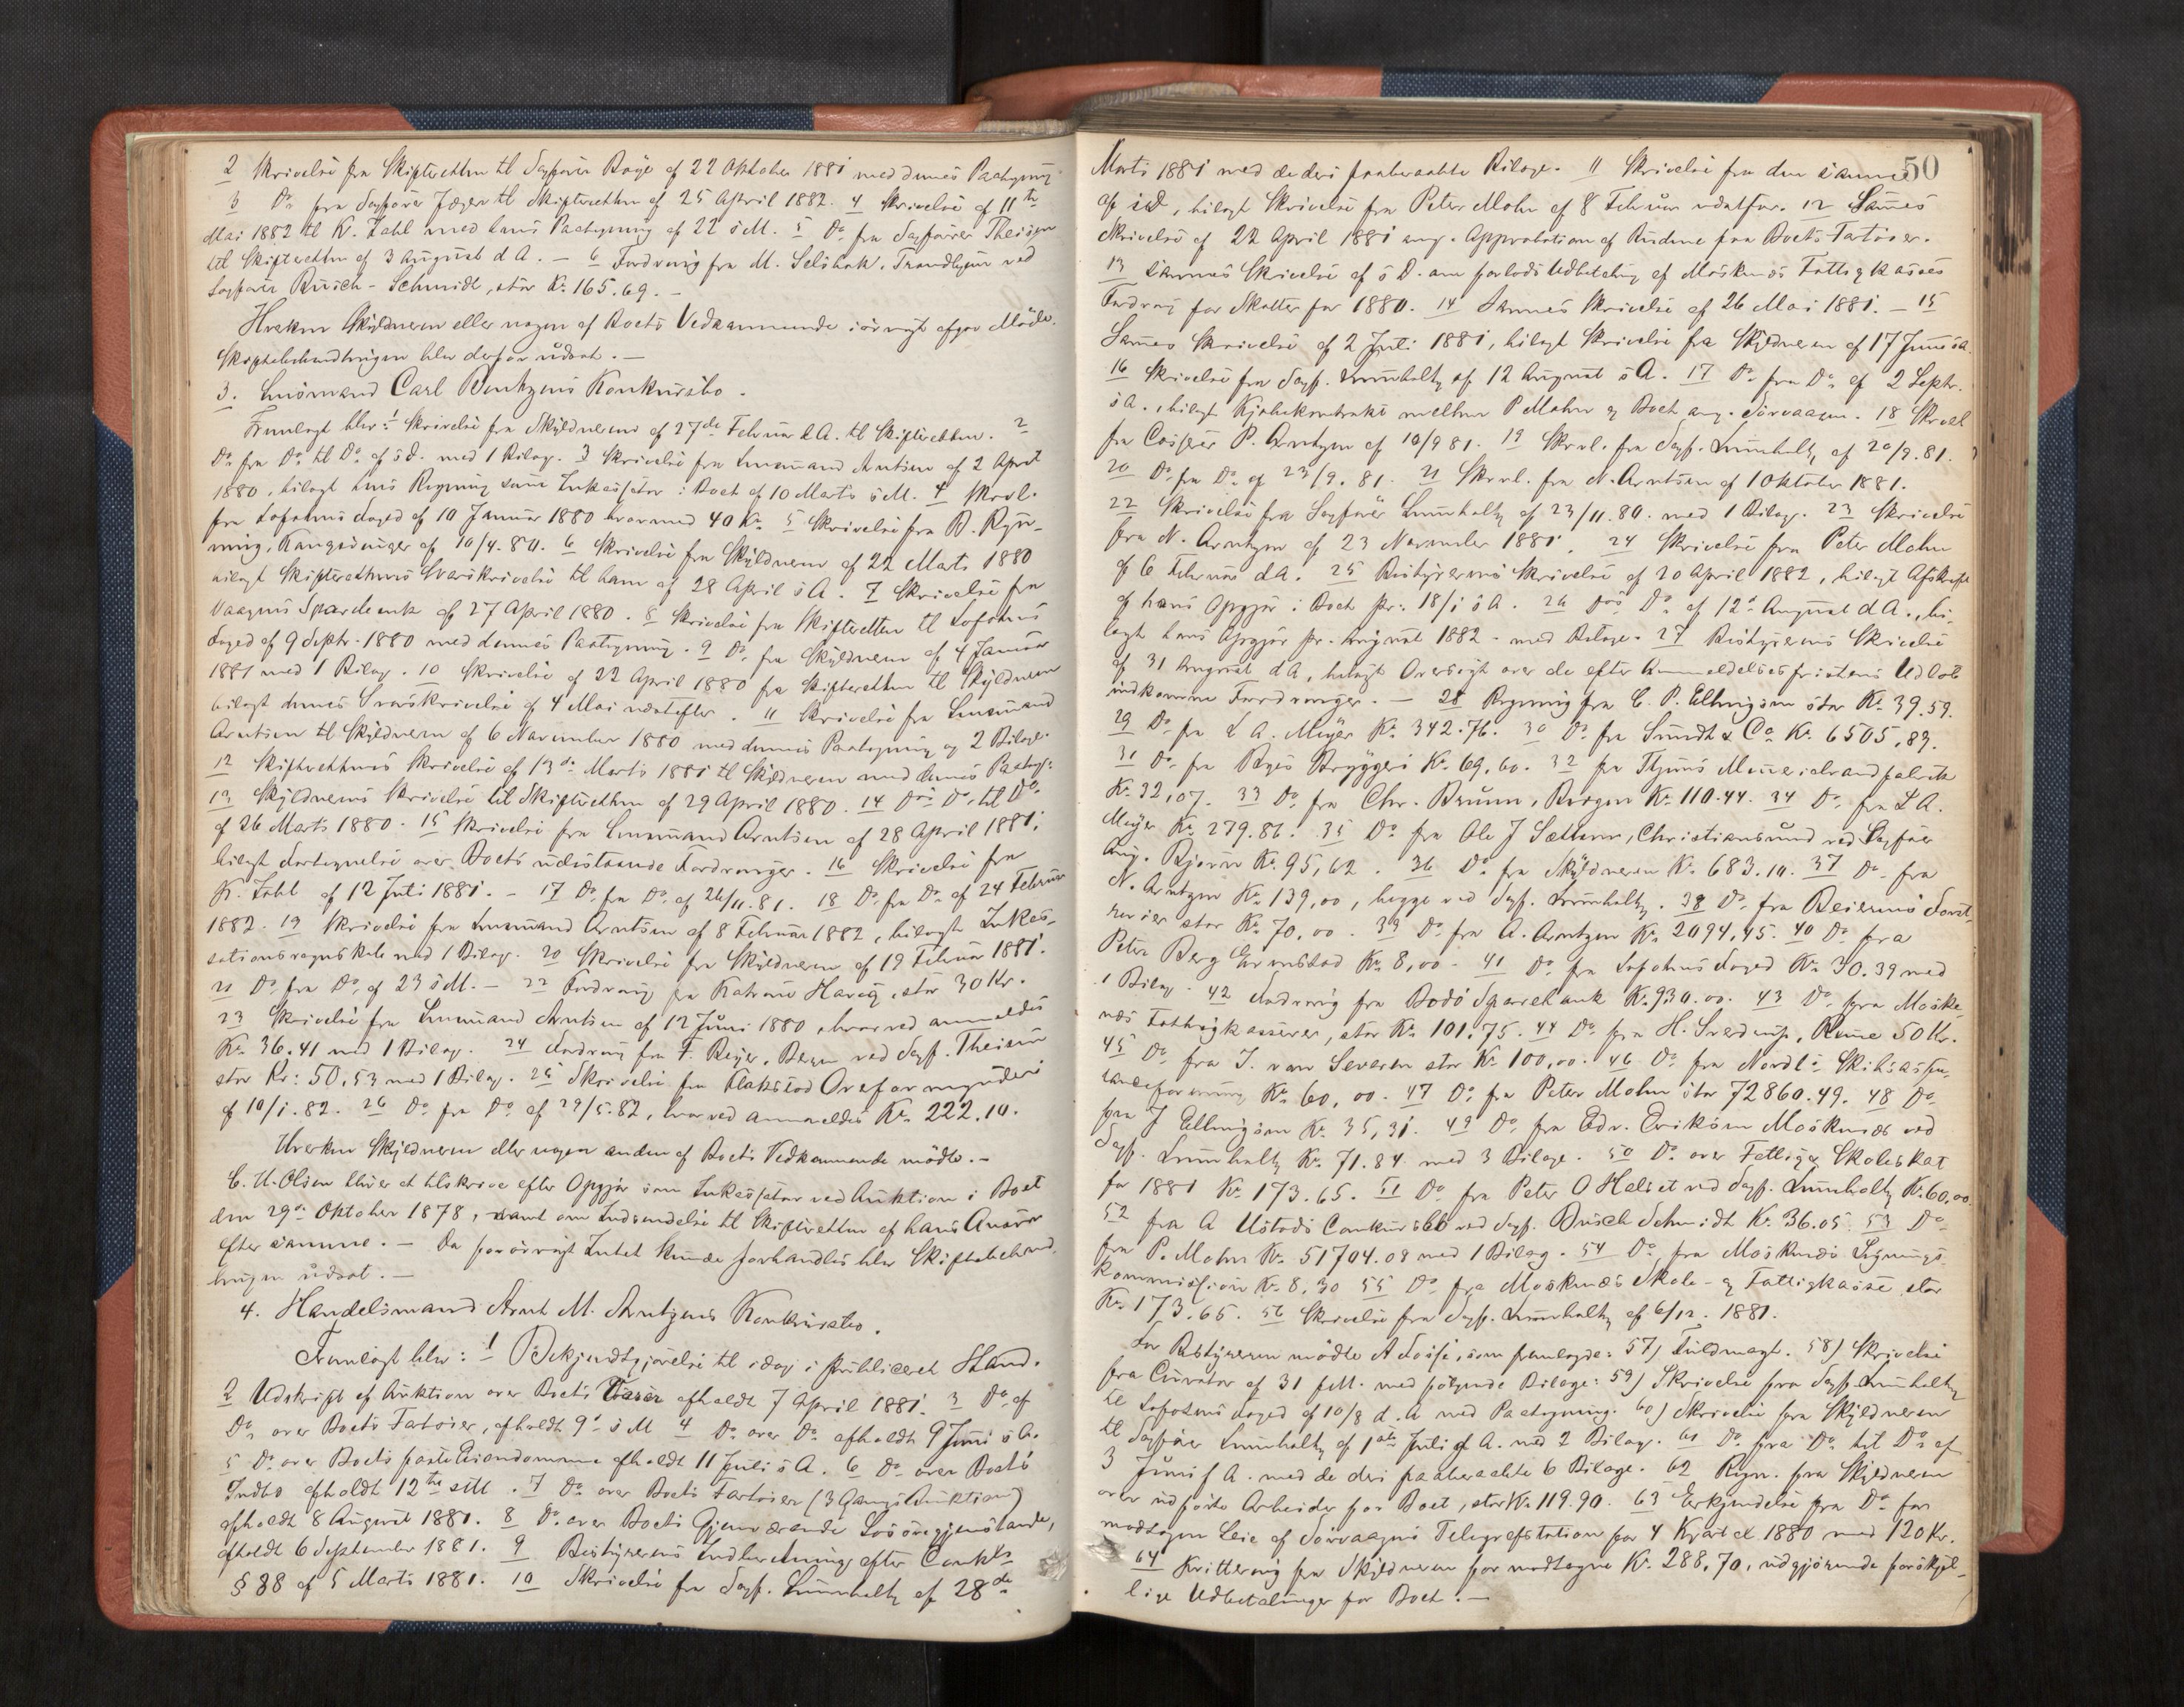 2 Skrivelse fra Skifteretten til Sagfører Bøge af 22 Oktober 1881 med dennes Paategning
3 Do fra Sagfører Jæger til Skifteretten af 25 April 1882. 4 Skrivelse af 11te
Mai 1882 til K. Zahl med hans Paategning af 22 s M. 5 Do fra Sagfører Theisen
til Skifteretten af 3 August d A. — 6 Fordring fra M. Selsbak, Trondhjem ved
Sagfører Busch-Schmidt, stor Kr. 165.69. —
Hverken Skyldneren eller nogen af Boets Vedkommende iøvrigt afgav Møde.
Skiftebehandlingen blev derfor udsat. —
3. Lensmand Carl Bentzens Konkursbo.
Fremlagt blev: 1 Skrivelse fra Skyldneren af 27de Februar d A. til Skifteretten. 2
Do fra Do til Do af s d. med 1 Bilag. 3 Skrivelse fra Lensmand Arntsen af 2 April
1880, bilagt hans Regning som Inkassator i Boet af 10 Marts s M. 4 Skrvl.
fra Lofotens Foged af 10 Januar 1880 hvormed 40 Kr. 5 Skrivelse fra B. Ryn-
ning, Kongsvinger af 10/4.80. 6 Skrivelse fra Skyldneren af 22 Marts 1880
bilagt Skifterettens Svarskrivelse til ham af 28 April s A. 7 Skrivelse fra
Vaagens Sparebank af 27 April 1880. 8 Skrivelse fra Skifteretten til Lofotens
Foged af 9 Septr. 1880 med dennes Paategning. 9 Do fra Skyldneren af 4 Januar
1881 med 1 Bilag. 10 Skrivelse af 22 April 1880 fra Skifteretten til Skyldneren
bilagt dennes Svarskrivelse af 4 Mai næstefter. 11 Skrivelse fra Lensmand
Arntsen til Skyldneren af 6 November 1880 med dennes Paategning og 2 Bilage.
12 Skifterettens Skrivelse af 13de Marts 1881 til Skyldneren med dennes Paateg:
13 Skyldnerens Skrivelse til Skifteretten af 29 April 1880. 14 Dos Do til Do
af 26 Marts 1880. 15 Skrivelse fra Lensmand Arntsen af 28 April 1881,
bilagt Fortegnelse over Boets udestaaende Fordringer. 16 Skrivelse fra
K. Zahl af 12 Juli 1881. — 17 Do fra Do af 26/11.81. 18 Do fra Do af 24 Februar
1882. 19 Skrivelse fra Lensmand Arntsen af 8 Februar 1882, bilagt Inkas-
sationsregnskab med 1 Bilag. 20 Skrivelse fra Skyldneren af 19 Februar 1881.
21 Do fra Do af 23 s M. — 22 Fordring fra Katrine Haveg, stor 30 Kr.
23 Skrivelse fra Lensmand Arntsen af 12 Juni 1880 hvorved anmeldes
Kr. 36.41 med 1 Bilag. 24 Fordring fra F. Beyer, Bergen ved Sagf. Theisen
stor Kr: 50,53 med 1 Bilag. 25 Skrivelse fra Flakstad Overformynderi
af 10/1.82. 26 Do fra Do af 29/5.82, hvorved anmeldes Kr. 222.10.
Hverken Skyldneren eller nogen anden af Boets Vedkommende mødte. —
C. U. Olsen bliver at tilskrive efter Opgjør som Inkassator ved Auktion i Boet
den 29de Oktober 1878, samt om Indsendelse til Skifteretten af hans Ansvar
efter samme. — Da forøvrigt Intet kunde forhandles blev Skiftebehand-
lingen udsat. —
4. Handelsmand Arnt M. Arntzens Konkursbo.
Fremlagt blev: 1 Bekjendtgjørelse til idag i publiceret Stand.
2 Udskrift af Auktion over Boets Varer afholdt 7 April 1881. 3 Do af
Do over Boets Fartøier, afholdt 9de s M 4 Do over Do afholdt 9 Juni s A.
5 Do over Boets faste Eiendomme afholdt 11 Juli s A. 6 Do over Boets
Indbo afholdt 12te sM. 7 Do over Boets Fartøier (3 Gangs Auktion)
afholdt 8 August 1881. 8 Do over Boets Gjenværende Løsøregjenstande,
afholdt 6 September 1881. 9 Bestyrerens Indberetning efter Conkls
§ 88 af 5 Marts 1881. 10 Skrivelse fra Sagf. Lumholtz af 28de
50
Marts 1881 med de deri paaberaabte Bilage. 11 Skrivelse fra den samme
af i d, bilagt Skrivelse fra Peter Mohn af 8 Februar næstfør. 12 Sammes
Skrivelse af 22 April 1881 ang. Approbation af Budene paa Boets Fartøier.
13 Sammes Skrivelse af s D. om forlods Udbetaling af Moskenes Fattigkasses
Fordring for Skatter for 1880. 14 Sammes Skrivelse af 26 Mai 1881. — 15
Sammes Skrivelse af 2 Juli 1881, bilagt Skrivelse fra Skyldneren af 17 Juni s A.
16 Skrivelse fra Sagf. Lumholtz af 12 August s A. 17 Do fra Do af 2 Septr.
s A., bilagt Kjøbekontrakt mellem P Mohn og Boet ang. Sørvaagen. 18 Skrvl
fra Casper P. Arntzen af 10/9 81. 19 Skrvl. fra Sagf. Lumholtz af 20/9.81.
20 Do fra Do af 23/9.81. 21 Skrvl. fra N. Arntsen af 1 Oktober 1881.
22 Skrivelse fra Sagfører Lumholtz af 23/11.80. med 1 Bilag. 23 Skrivelse
fra N. Arntzen af 23 November 1881. 24 Skrivelse fra Peter Mohn
af 6 Februar d A. 25 Bestyrerens Skrivelse af 20 April 1882, bilagt Afskrift
af hans Opgjør i Boet pr: 18/1 s A. 26 Dos Do af 12te August d A., bi-
lagt hans Opgjør pr. August 1882 - med Bilage. 27 Bestyrerens Skrivelse
af 31 August d A, bilagt Oversigt over de efter Anmeldelsesfristens Udløb
indkomne Fordringer. — 28 Regning fra C. P. Ellingsen stor Kr. 39.59.
29 Do fra L A. Meyer Kr. 342.76. 30 Do fra Sundt & Co Kr. 6505,83.
31 Do fra Byes Bryggeri Kr. 69,60. 32 fra Thjems Mineralvandfabrik
Kr. 32,07. 33 Do fra Chr. Bruun, Bergen Kr. 110.44. 34 Do fra L A.
Meyer Kr. 279.86. 35 Do fra Ole J Sæthern, Christiansund ved Sagfører
Aug. Bjercke Kr. 95,62. 36 Do fra Skyldneren Kr. 683.10. 37 Do fra
N. Arntzen Kr. 139,00, begge ved Sagf. Lumholtz. 38 Do fra Beierens Forst-
revier stor Kr. 70,00. 39 Do fra A. Arntzen Kr. 2094,45. 40 Do fra
Peter Berg Grimstad Kr. 8,00 - 41 Do fra Lofotens Foged Kr. 30.39 med
1 Bilag. 42 Fordring fra Bodø Sparebank Kr. 930.00. 43 Do fra Moske-
næs Fattigkasserer, stor Kr. 101.75. 44 Do fra H. Sverdrup, Reine 50 Kr.
45 Do fra J. von Severen stor Kr. 100,00. 46 Do fra Nordl: Skibsassu-
ranceforening Kr. 60,00. 47 Do fra Peter Mohn stor 72860.49. 48 Do
fra J Ellingsen Kr. 35,31. 49 Do fra Edv. Eriksen Moskenæs ved
Sagf. Lumholtz Kr. 71.84 med 3 Bilage. 50 Do over Fattig og Skoleskat
for 1881 Kr. 173.65. 51 Do fra Peter O Halset ved Sagf. Lumholtz Kr. 60,00
52 fra A Ustads Conkursbo ved Sagf. Busch Schmidt Kr. 36.05. 53 Do
fra P. Mohn Kr. 51704.08 med 1 Bilag. 54 Do fra Moskenæs Lignings-
kommission Kr. 8,30 55 Do fra Moskenæs Skole- og Fattigkasse stor
Kr. 173.65. 56 Skrivelse fra Sagf. Lumholtz af 6/12. 1881.
For Bestyreren mødte A Fosse, som fremlagde: 57) Fuldmagt. 58) Skrivelse
fra Curator af 31 f M. med følgende Bilage: 59) Skrivelse fra Sagf. Lumholtz
til Lofotens Foged af 10/8 d. A med Paategning. 60) Skrivelse fra Skyldneren
til Sagfører Lumholtz af 1ste Juli f A. med 2 Bilag. 61 Do fra Do til Do af
3 Juni f A. med de deri paaberaabte 6 Bilage. 62 Regn. fra Skyldneren
over udførte Arbeider for Boet, stor Kr. 119.90. 63 Erkjendelse fra Do for
modtagen Leie af Sørvaagens Telegrafstation for 4 Kvartal 1880 med 120 Kr.
64 Kvittering fra Skyldneren for modtagne Kr. 288,70, udgjørende forskjel-
lige Udbetalinger for Boet. —